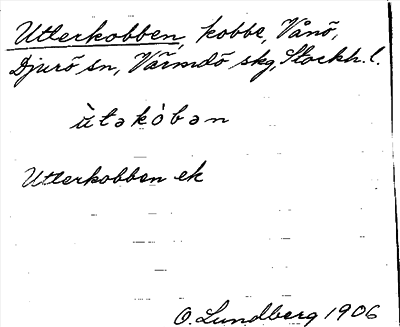 Utterkobben, kobbe, Vånö,
Djurö sn, Värmdö skg, Stockh. l.
ùtəkòbən
Utterkobben ek
O. Lundberg 1906